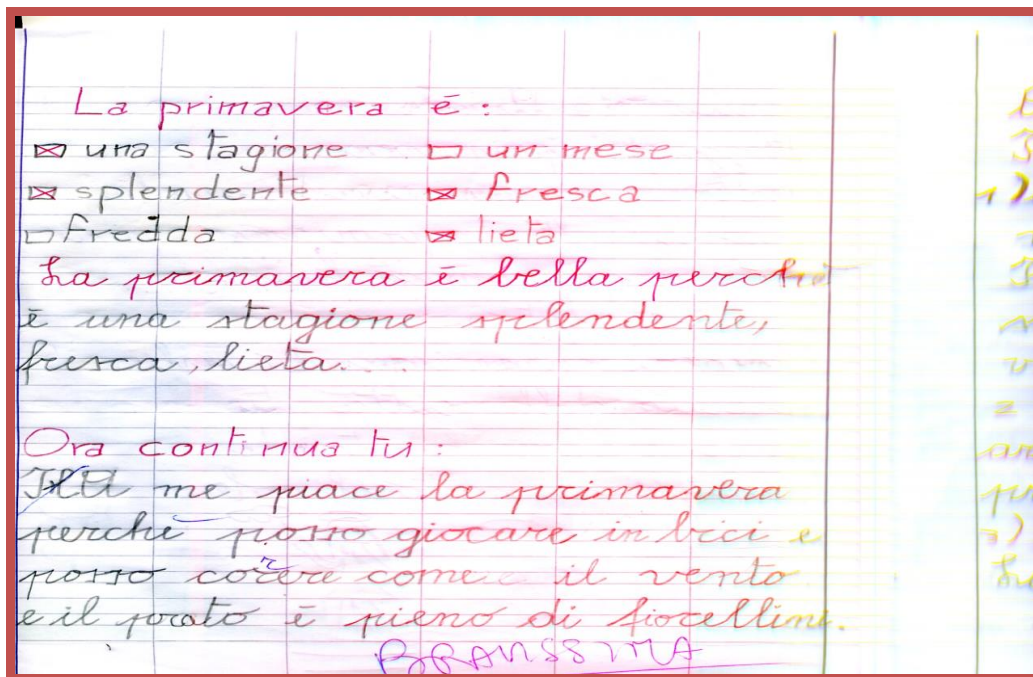 La primavera è:
una stagione un mese
splendente fresca
fredda lieta
La primavera è bella perché
è una stagione splendente,
fresca, lieta.
Ora continua tu:
me piace la primavera
perché posso giocare in bici e
posso correre come il vento
e il prato è pieno di fiorellini.